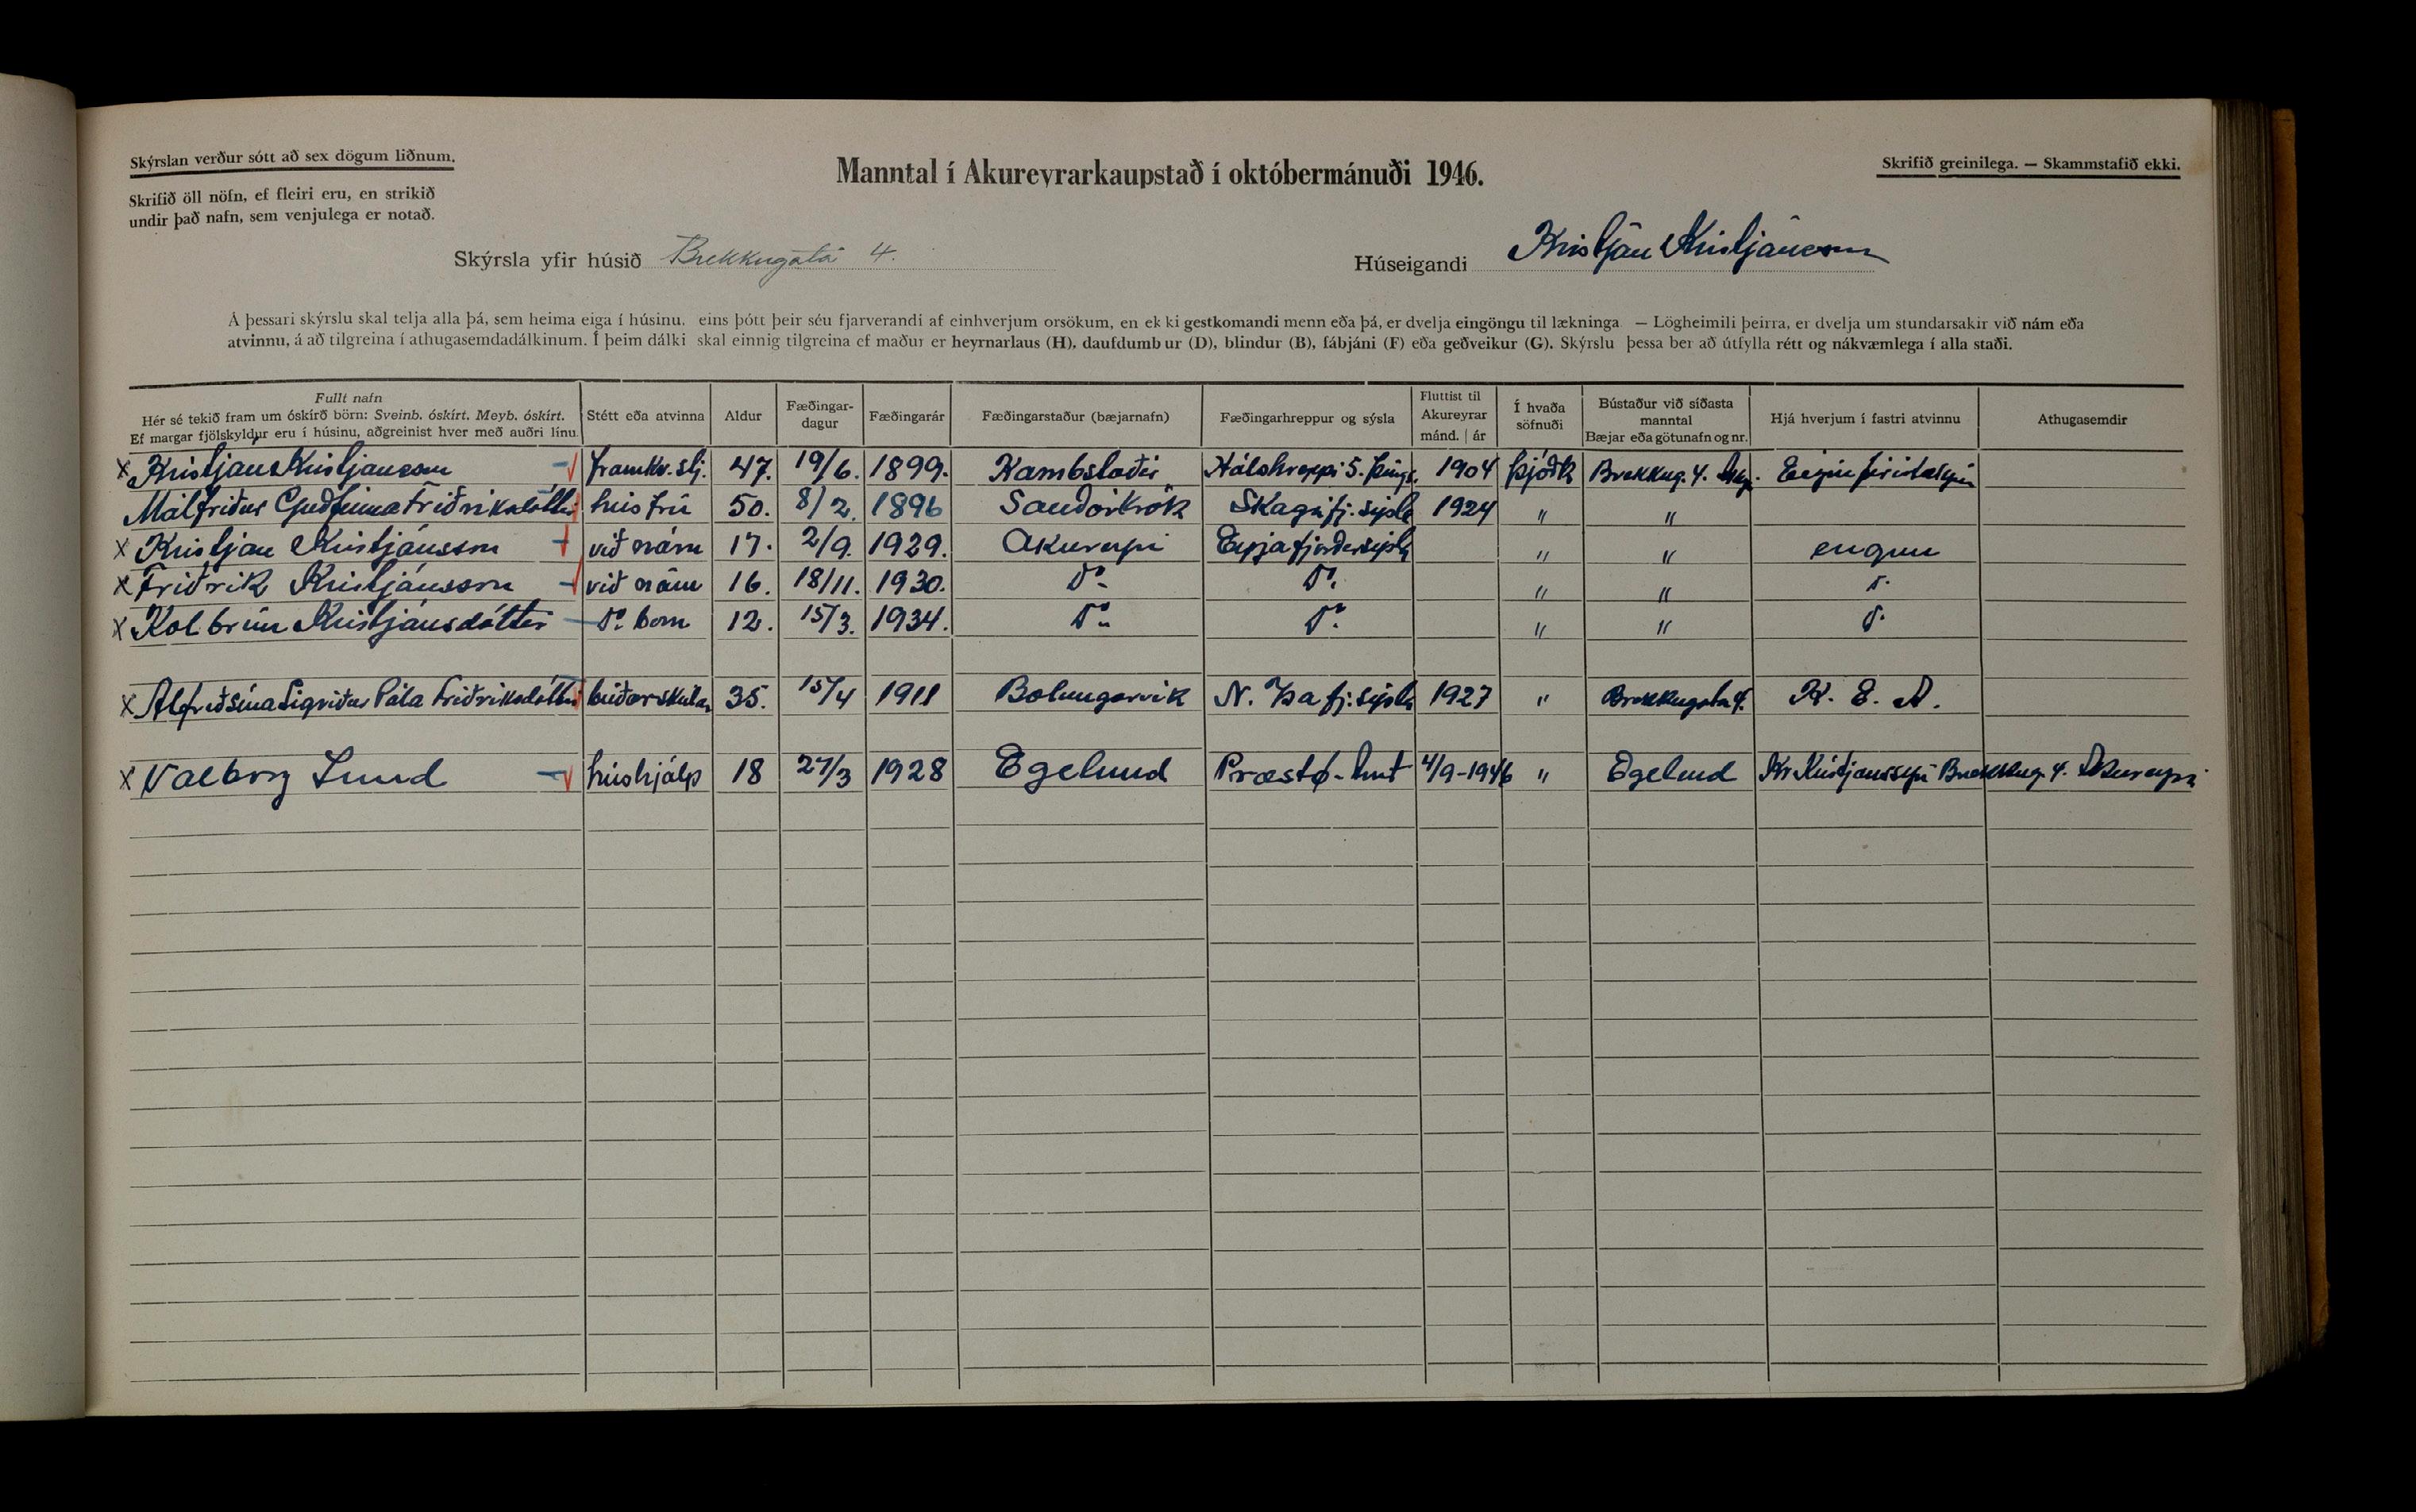 Skýrslan verður sótt að sex dögum liðnum.
Skrifið öll nöfn, ef fleiri eru, en strikið
undir það nafn, sem venjulega er notað.
Manntal í Akureyrarkaupstað í októbermánuði 1946.
Skrifið greinilega. — Skammstafið ekki.
Skýrsla yfir húsið Brekkugata 4.
Húseigandi Kristján Kristjánsson
Á þessari skýrslu skal telja alla þá, sem heima eiga í húsinu, eins þótt þeir séu fjarverandi af einhverjum orsökum, en ekki gestkomandi menn eða þá, er dvelja eingöngu til lækninga — Lögheimili þeirra, er dvelja um stundarsakir við nám eða
atvinnu, á að tilgreina í athugasemdadálkinum. Í þeim dálki skal einnig tilgreina ef maður er heyrnarlaus (H), daufdumbur (D), blindur (B), fábjáni (F) eða geðveikur (G). Skýrslu þessa ber að útfylla rétt og nákvæmlega í alla staði.
Fullt nafn
Hér sé tekið fram um óskírð börn: Sveinb. óskírt. Meyb. óskírt.
Ef margar fjölskyldur eru í húsinu, aðgreinist hver með auðri línu.
Stétt eða atvinna
Aldur
Fæðingar-
dagur
Fæðingarár
Fæðingarstaður (bæjarnafn)
Fæðingarhreppur og sýsla
Fluttist til
Akureyrar
mánd. | ár
Í hvaða
söfnuði
Bústaður við síðasta
manntal
Bæjar eða götunafn og nr.
Hjá hverjum í fastri atvinnu
Athugasemdir
x Kristján Kristjánsson framkv.stj. 47. 19/6. 1899. Kambstaðir Hálshreppi S. Þing. 1904 þjóðk Brekkug. 4. Ak. Eigin fyrirtæki
Málfriður Guðfinna Friðriksdóttir húsfrú 50. 8/2. 1896 Sauðárkrók Skagafj.sýsla 1924 " "
x Kristján Kristjánsson við nám 17. 2/9. 1929. Akureyri Eyjafjarðarsýsla " " engum
x Friðrik Kristjánsson við nám 16. 18/11. 1930. Do Do. " " D.
x Kolbrún Kristjánsdóttir Do. barn 12. 15/3. 1934. Do Do. " " D.
x Alfreðsína Sigriður Pála Friðriksdóttir búðarstúlka 35. 15/4 1911 Bolungarvik N. Ísafj.sýsla 1927 " Brekkugata 4. K. E. A.
x Valborg Lund húshjálp 18 27/3 1928 Egelund Præstø-Amt 4/9-1946 " Egelund Kr Kristjánssyni Brekkug. 4. Akureyri